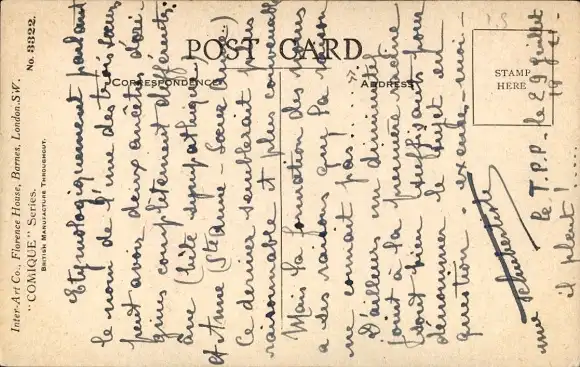 POST CARD
CORRESPONDENCE
ADDRESS
STAMP
HERE
Inter-Art Co., Florence House, Barnes, London, S.W.
"COMIQUE" Series. No. 3322.
BRITISH MANUFACTURE THROUGHOUT.
le T.P.P. le 29 juillet
il pleut!....
Etymologiquement parlant
le nom de l'une des trois sœurs
peut avoir deux ancêtres d'ori-
gines complètement différents:
âne (bête sympathique)
et Anne (Ste Anne - Sœur Anne..)
Ce dernier semblerait plus
raisonnable et plus convenable
Mais la formation des noms
a ses raisons que la raison
ne connait pas!....
D'ailleurs un diminutif
joint à la première racine
sont bien suffisants pour
dénommer le sujet en
question - excusez-moi -
une schubertiste